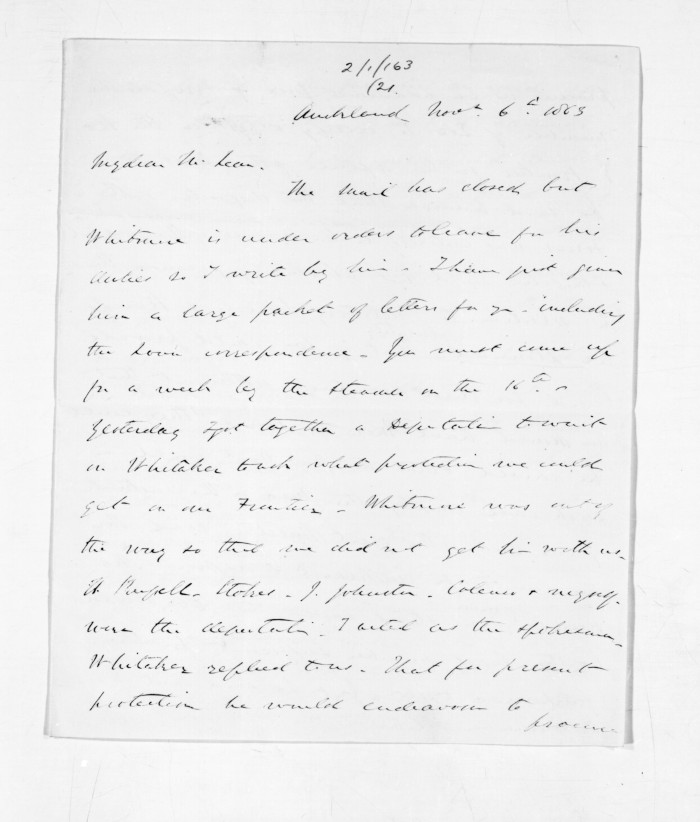 2/1/163
(21.
Auckland Novr. 6th 1863
My dear McLean.
The mail has closed but
Whitmore is under orders to leave for his
duties so I write by him - I have just given
him a large packet of letters for you - including
the correspondence - You must come up
for a week by the steamer on the 16th -
Yesterday I got together a Deputation to wait
on Whitaker to ask what protection we could
get on our Frontier - Whitmore was out of
the way so that we did not get him with us.
H Russell - Stokes - J. Johnston - Colenso & myself
were the deputation. I acted as the spokesman -
Whitaker replied to us - That for present
protection he would endeavour to
procure